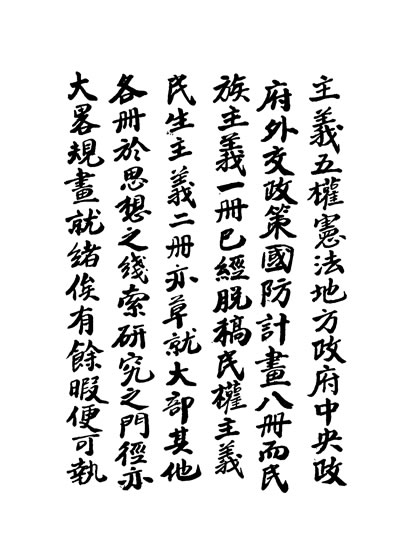 主義五權憲法地方政府中央政
府外交政策國防計畫八冊而民
族主義一冊已經脫稿民權主義
民生主義二冊亦草就大部其他
各冊於思想之綫索研究之門徑亦
大畧規畫就緒俟有餘暇便可執